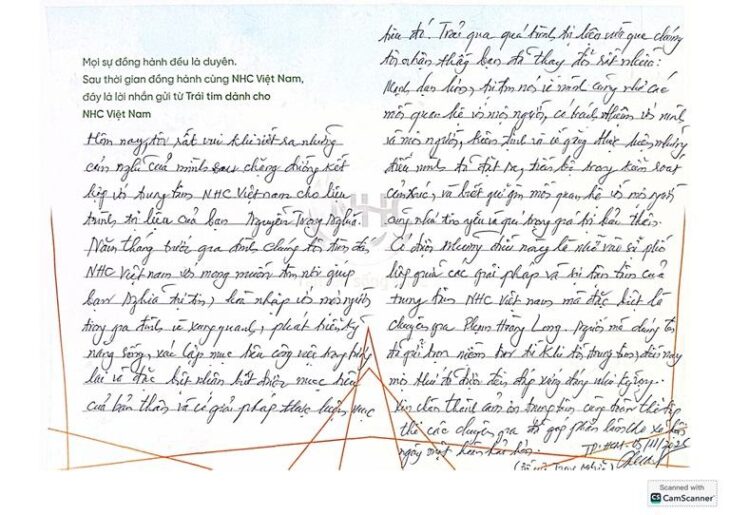 Mọi sự đồng hành đều là duyên.
Sau thời gian đồng hành cùng NHC Việt Nam,
đây là lời nhắn gửi từ Trái tim dành cho
NHC Việt Nam
Hôm nay tôi rất vui khi viết ra những
cảm nghĩ của mình sau chặng đường kết
hợp với trung tâm NHC Việt Nam cho liệu
trình trị liệu của bạn Nguyễn Trọng Nghĩa.
Năm tháng trước gia đình chúng tôi tìm đến
NHC Việt Nam với mong muốn tìm nơi giúp
bạn Nghĩa tự tin, hòa nhập với mọi người
trong gia đình và xung quanh, phát triển kỹ
năng sống, xác lập mục tiêu công việc tương
lai và đặc biệt nhận biết được mục tiêu
của bản thân và có giải pháp thực hiện mục
tiêu đó. Trải qua quá trình trị liệu vừa qua chúng
tôi nhận thấy bạn đã thay đổi rất nhiều:
Mạnh dạn hơn, tự tin nói về mình cũng như các
mối quan hệ với mọi người, có trách nhiệm với mình
và mọi người, kiên định và cố gắng thực hiện những
điều mình đã đặt ra, tiến bộ trong kiểm soát
cảm xúc, và biết giữ gìn mối quan hệ với mọi người
cũng như tin yêu và quý trọng giá trị bản thân.
Có được những điều này là nhờ vào sự phối
hợp giữa các giải pháp và sự tận tâm của
trung tâm NHC Việt Nam mà đặc biệt là
chuyên gia Phạm Hoàng Long. Người mà chúng tôi
đã gửi trọn niềm tin từ khi tới trung tâm, đến nay
mọi thứ đã được đền đáp xứng đáng như kỳ vọng.
Xin chân thành cảm ơn trung tâm cùng toàn thể tập
thể các chuyên gia đã góp phần làm cho xã hội
ngày một hoàn hảo hơn.
TP. HCM. 15/11/2025
Scanned with
CS CamScanner